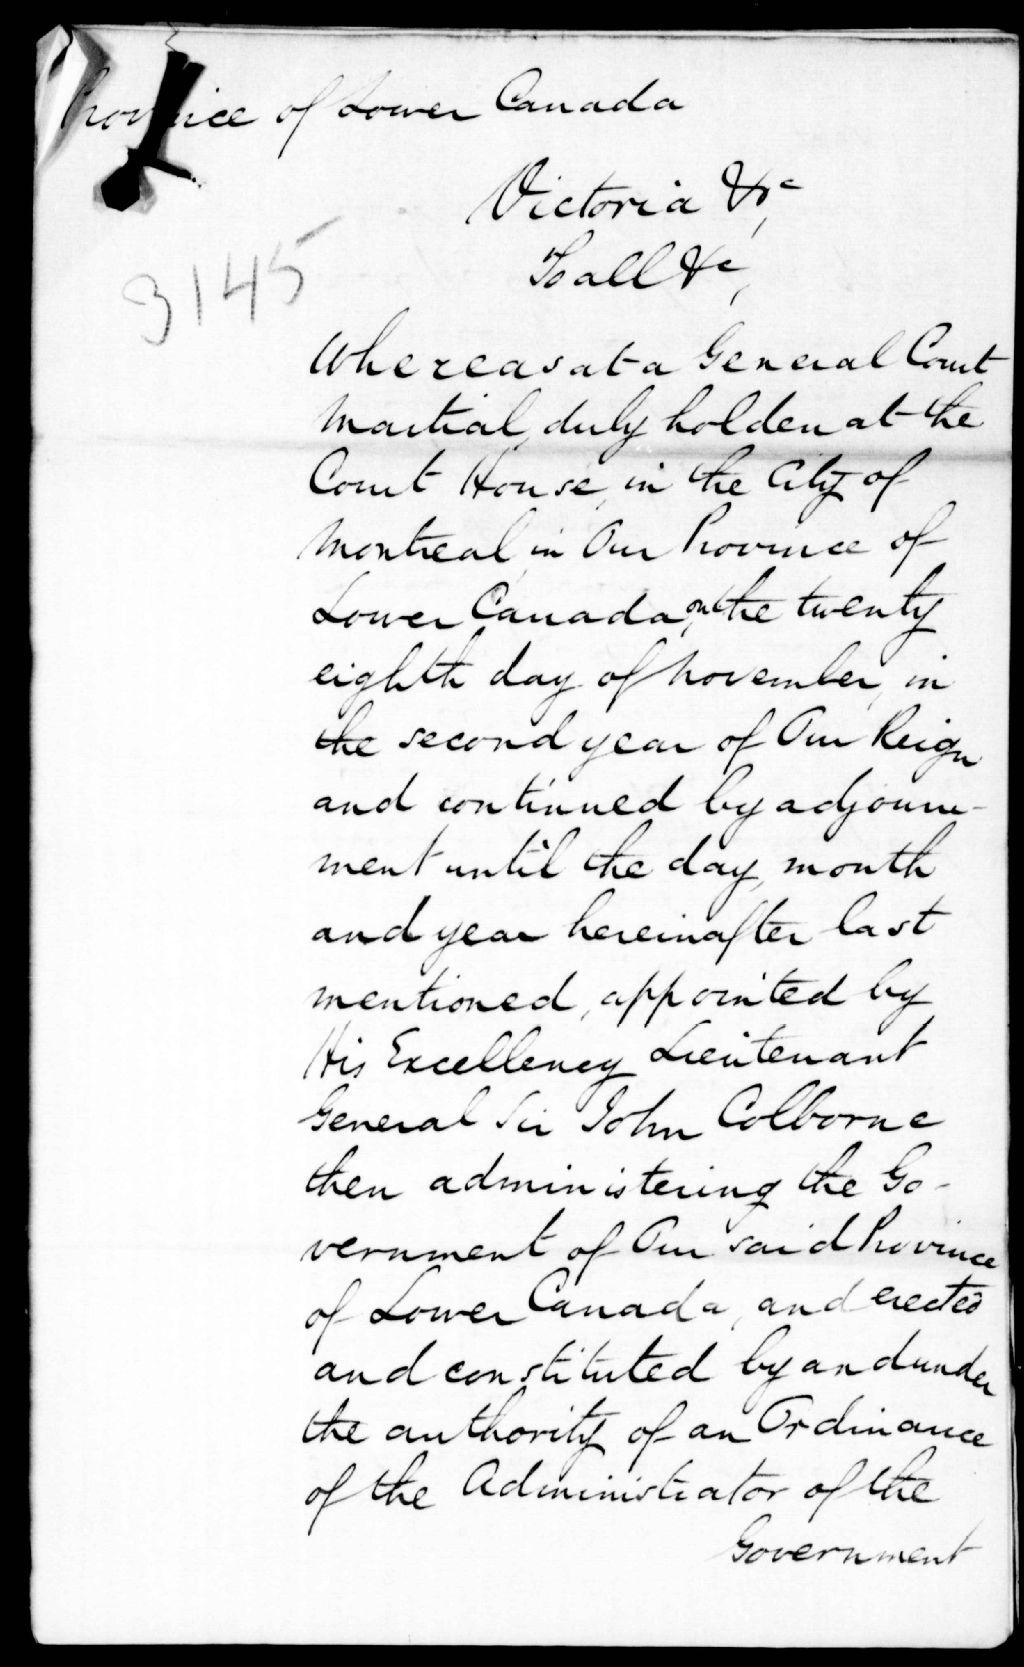 Province of Lower Canada
Victoria &c,
To all &c,
3145
Whereas at a General Court
Martial, duly holden at the
Court House, in the City of
Montreal, in Our Province of
Lower Canada, on the twenty
eighth day of November, in
the second year of Our Reign
and continued by adjourn-
ment until the day, month
and year hereinafter last
mentioned, appointed by
His Excellency Lieutenant
General Sir John Colborne
then administering the Go-
vernment of Our said Province
of Lower Canada, and erected
and constituted by and under
the authority of an Ordinance
of the Administrator of the
Government